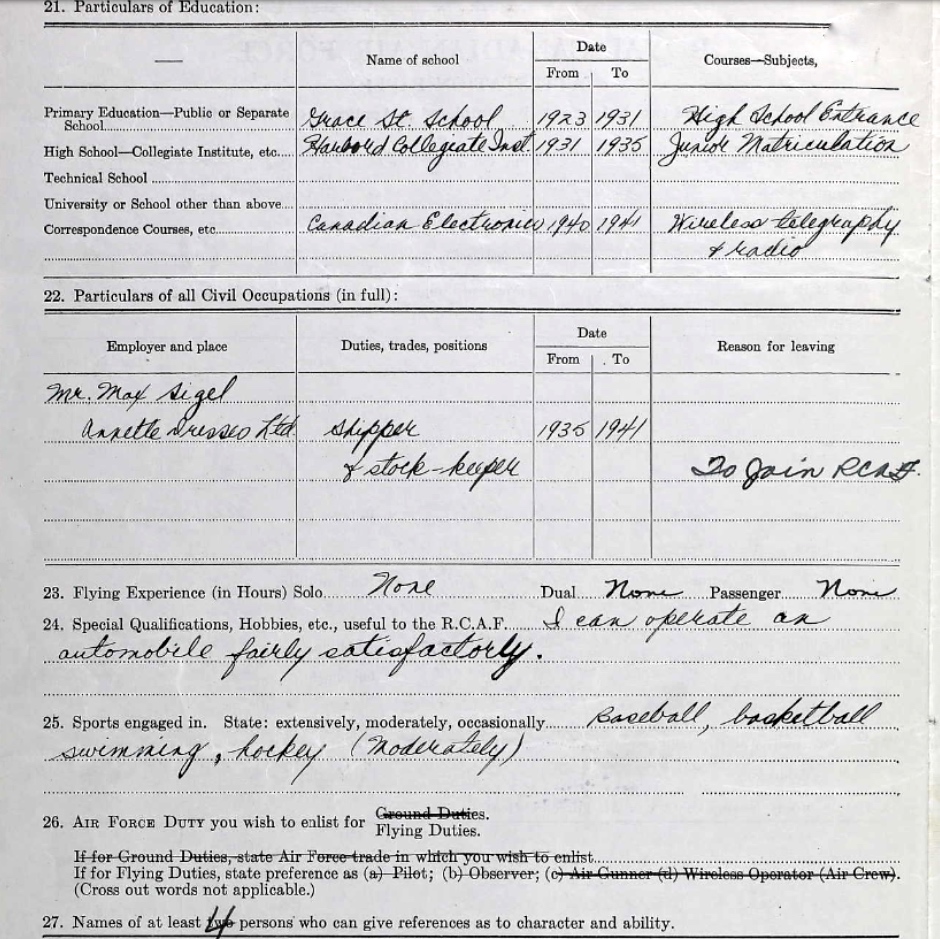 21. Particulars of Education:
Name of school Date Courses—Subjects,
From To
Primary Education—Public or Separate
School Grace St. School 1923 1931 High School Entrance
High School—Collegiate Institute, etc. Harbord Collegiate Inst. 1931 1935 Junior Matriculation
Technical School
University or School other than above
Correspondence Courses, etc. Canadian Electronics 1940 1941 Wireless telegraphy
& radio
22. Particulars of all Civil Occupations (in full):
Employer and place Duties, trades, positions Date Reason for leaving
From To
Mr. Max Sigel
Annette Dresses Ltd. Shipper 1935 1941
& stock-keeper To Join RCAF.
23. Flying Experience (in Hours) Solo None Dual None Passenger None
24. Special Qualifications, Hobbies, etc., useful to the R.C.A.F. I can operate an
automobile fairly satisfactorly.
25. Sports engaged in. State: extensively, moderately, occasionally Baseball, basketball
swimming, hockey (Moderately)
26. AIR FORCE DUTY you wish to enlist for Ground Duties.
Flying Duties.
If for Ground Duties, state Air Force trade in which you wish to enlist
If for Flying Duties, state preference as (a) Pilot; (b) Observer; (c) Air Gunner (d) Wireless Operator (Air Crew).
(Cross out words not applicable.)
27. Names of at least two 4 persons who can give references as to character and ability.